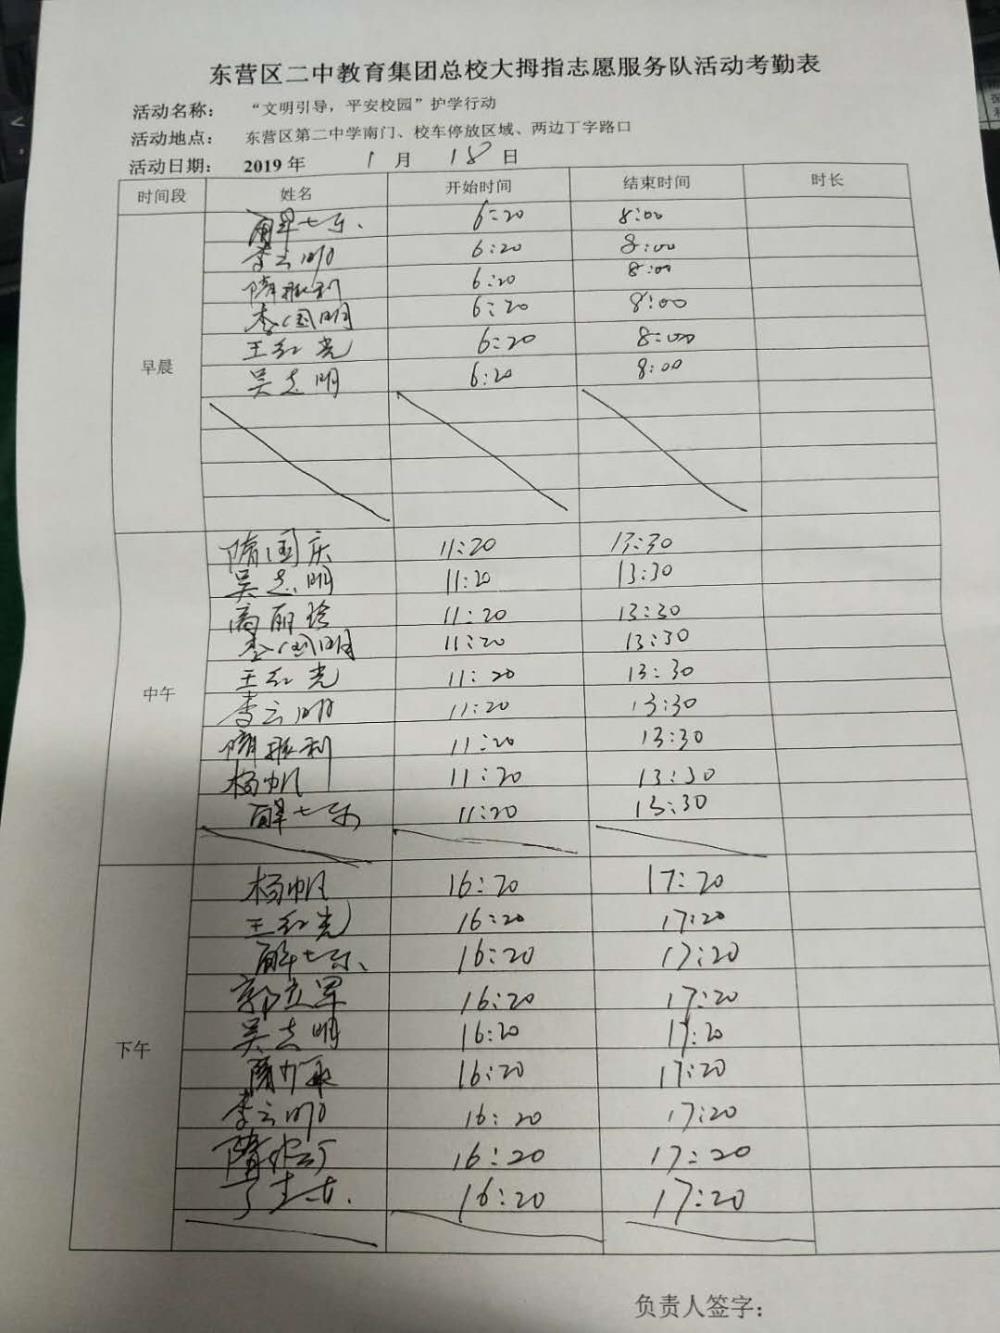 东营区二中教育集团总校大拇指志愿服务队活动考勤表
活动名称： “文明引导，平安校园”护学行动
活动地点： 东营区第二中学南门、校车停放区域、两边丁字路口
活动日期： 2019 年 1 月 18 日
时间段 姓名 开始时间 结束时间 时长
早晨
6:20 8:00
李云明 6:20 8:00
隋胜利 6:20 8:00
李国明 6:20 8:00
王红光 6:20 8:00
吴志明 6:20 8:00
中午
隋国庆 11:20 13:30
吴志明 11:20 13:30
高丽玲 11:20 13:30
李国明 11:20 13:30
王红光 11:20 13:30
李云明 11:20 13:30
隋胜利 11:20 13:30
杨帆 11:20 13:30
11:20 13:30
下午
杨帆 16:20 17:20
王红光 16:20 17:20
16:20 17:20
郭立军 16:20 17:20
吴志明 16:20 17:20
16:20 17:20
李云明 16:20 17:20
16:20 17:20
16:20 17:20
负责人签字：